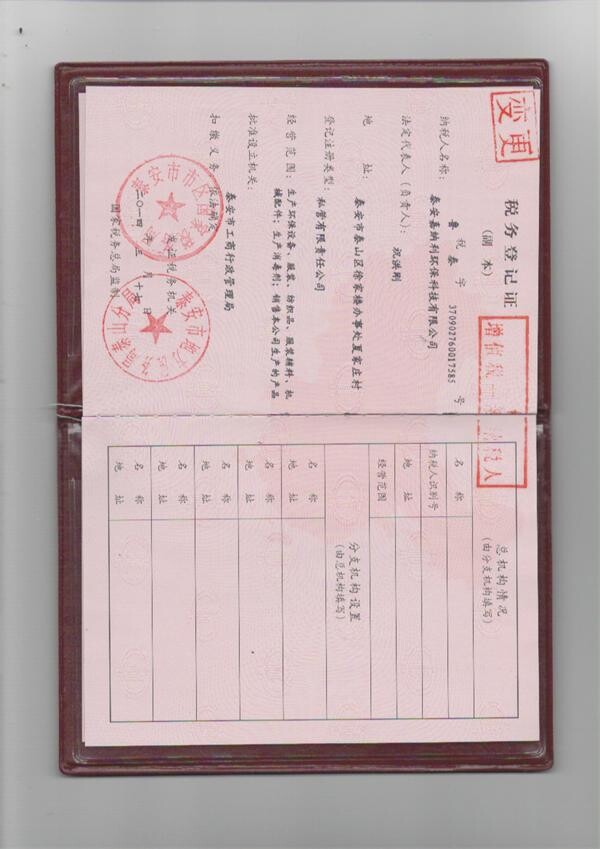 变更
税务登记证
(副本)
鲁 税 泰 字 370902760017585 号
增值税一般纳税人
纳税人名称： 泰安嘉纳利环保科技有限公司
法定代表人（负责人）： 祝洪刚
地 址： 泰安市泰山区徐家楼办事处夏家庄村
登记注册类型： 私营有限责任公司
经营范围： 生产环保设备、服装、纺织品、服装辅料、机
械配件；生产消毒剂；销售本公司生产的产品
批准设立机关： 泰安市工商行政管理局
扣缴义务： 依法确定
发证税务机关
二〇一四 年 三 月 十七 日
国家税务总局监制
总机构情况
(由分支机构填写)
名 称
纳税人识别号
地 址
经营范围
分支机构设置
(由总机构填写)
名 称
地 址
名 称
地 址
名 称
地 址
名 称
地 址